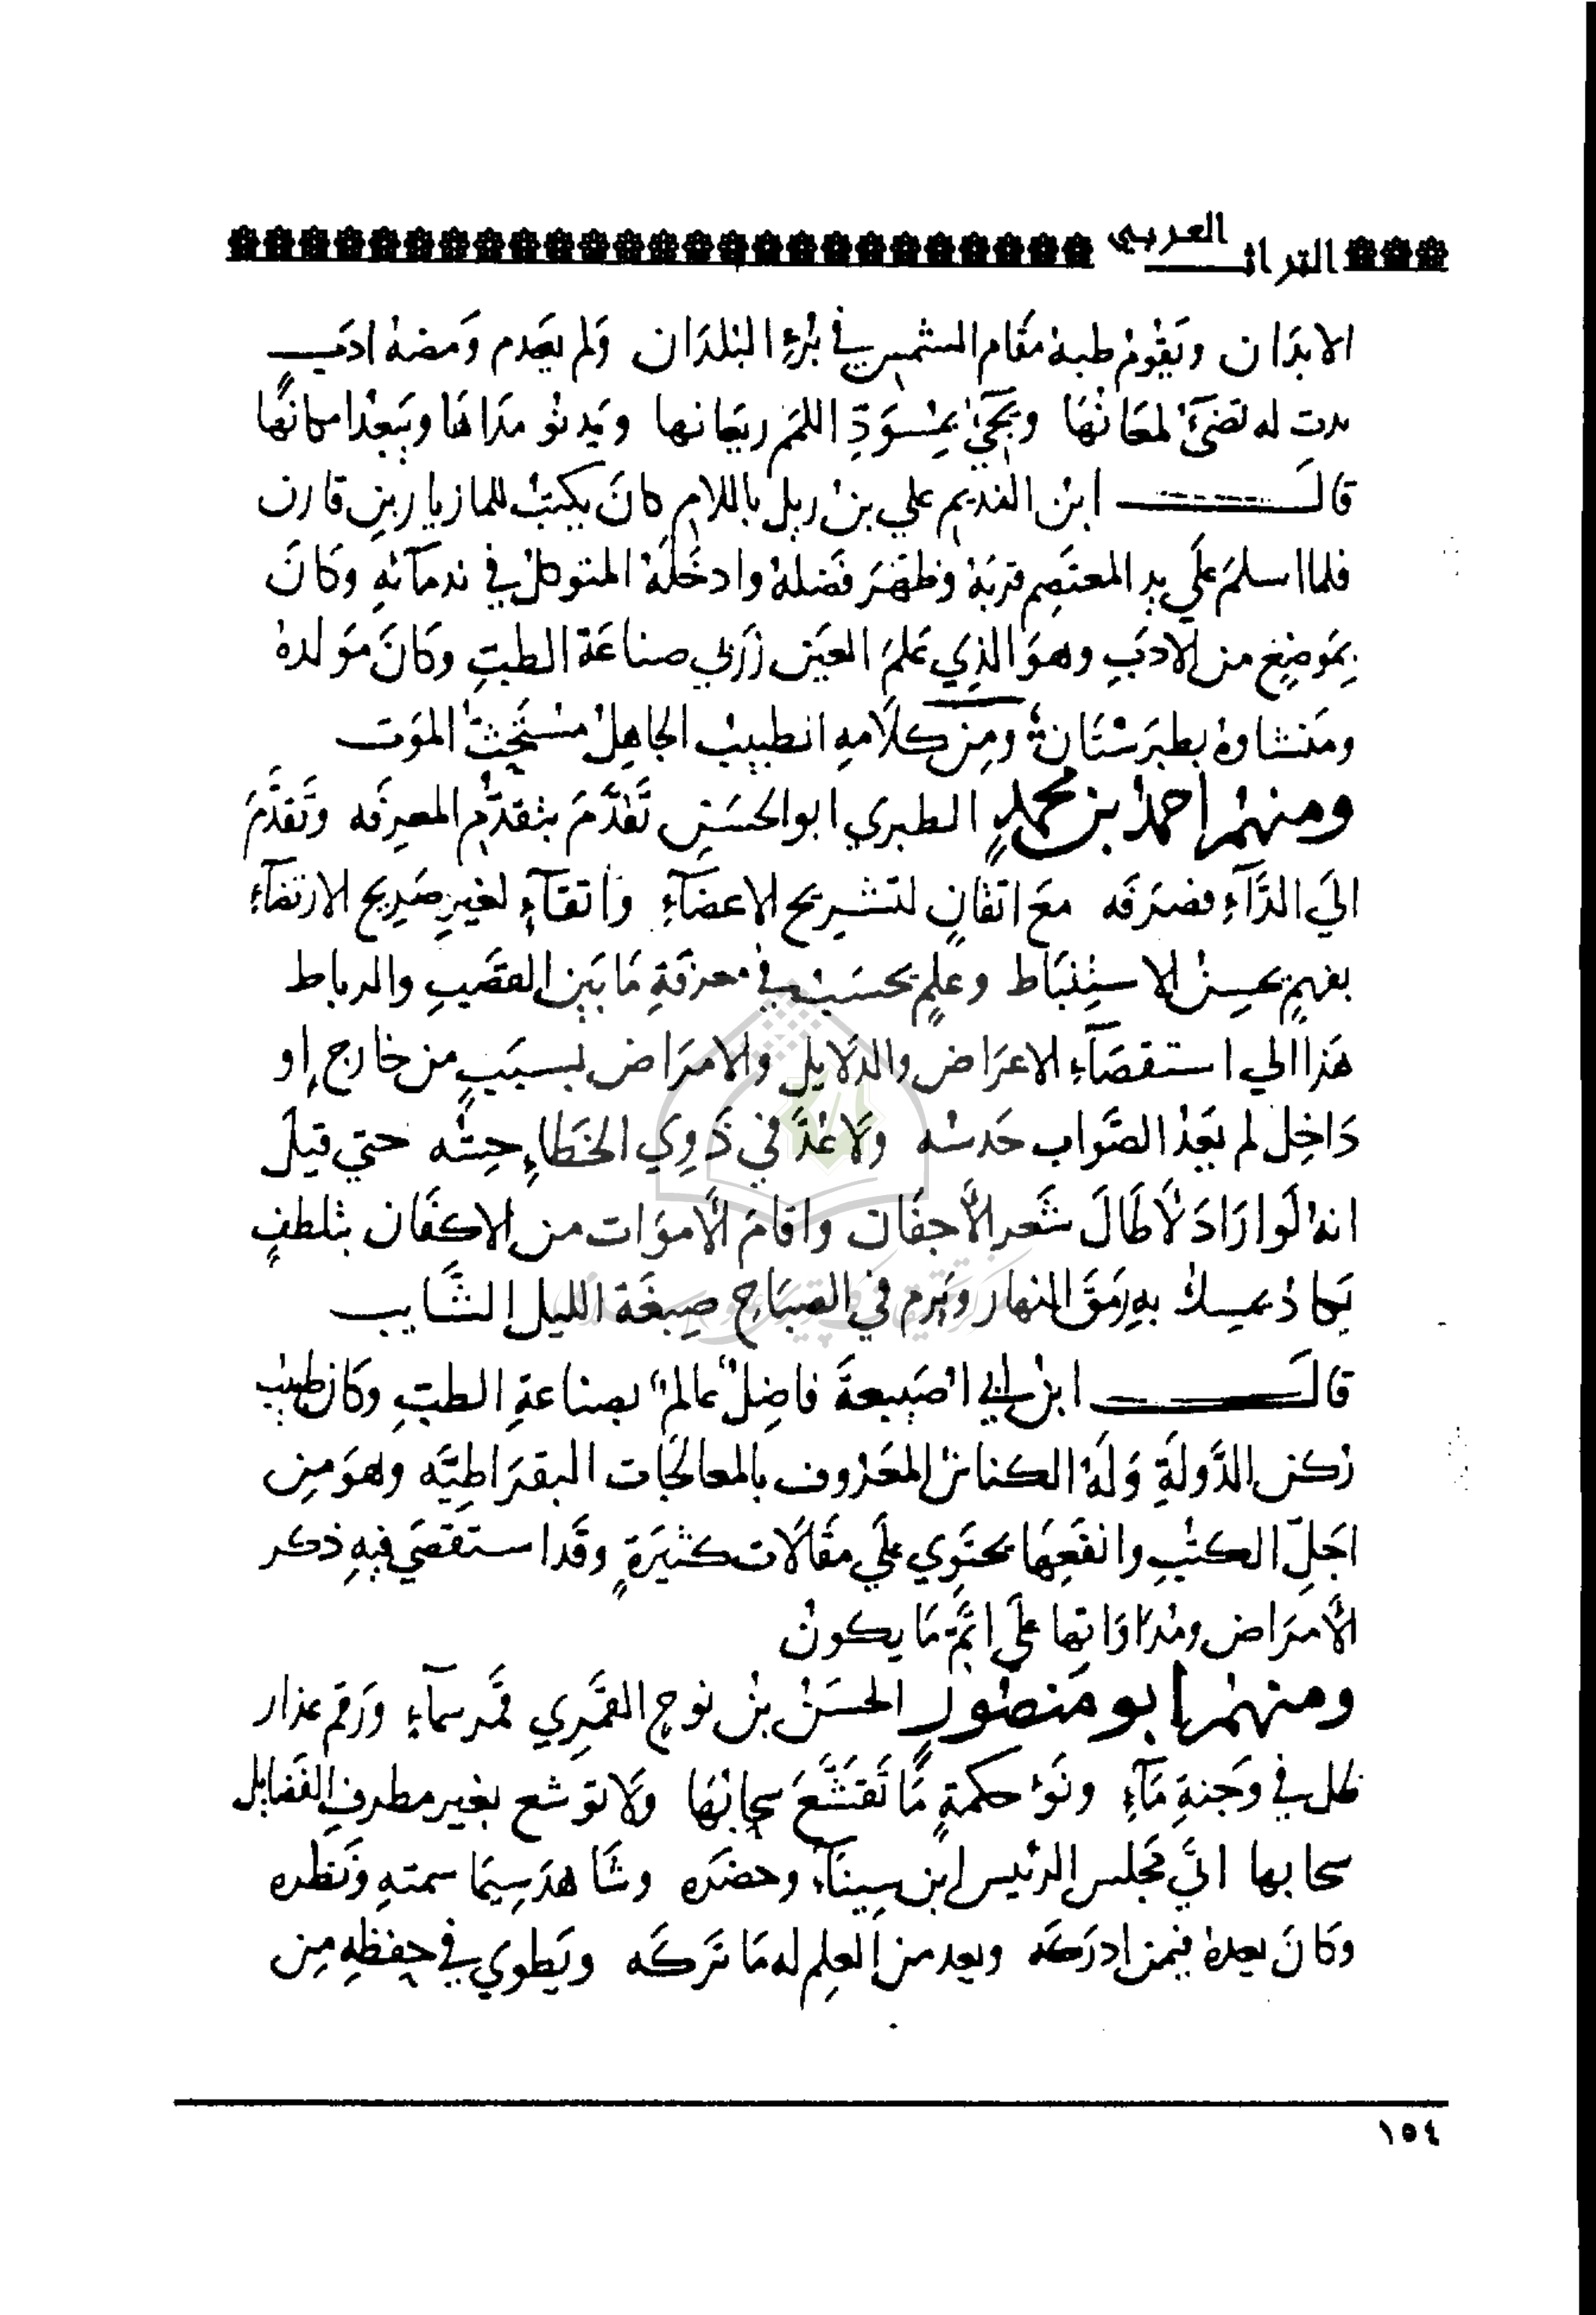 التراث العربي
الابدَان ويَقُومُ طبهُ مقَام الشمسِ في بُرءِ البُلدَان وَلم يعَدم وَمضهُ ادَب
بدت له تضئُ لمعَانُهَا ويجَئُ بمُسوَدِّ اللمَم ريعَانها ويَدنُو مدَاهَا ويَبعُدُ امكانُها
قالَ ابن النديم علي بن ربل باللام كانَ يكتبُ للمازيار بن قارن
فلما اسلمَ علَي يدِ المعتَصِم قربَهُ وظهَرَ فَضلهُ وادخَلَهُ المتوكلُ في ندمآئهِ وكَانَ
بمَوضِعٍ من الادَبِ وهوَ الذِي عَلمَ العَين زَربي صناعَة الطبِ وكَانَ مَولدهُ
ومَنشاوهُ بطبرَستَان ومِن كلَامهِ الطبيبُ الجاهِلُ مُستَحِثُ الموَت
ومنهُم احمدُ بن محمدٍ الطبري ابو الحسَنِ تَقدَّمَ بتقدُّمِ المعرفَه وتَقدَّمَ
الَي الدَّآءِ فصَرَفَه معَ اتقانٍ لتشريح الاعضَآءِ واتقآءٍ لغيرِ صَرِيح الارتضآءِ
بفهمٍ يحسِنُ الاستِنبَاط وعلمٍ يحسَبُ في معرفَةِ مَا بَين القصَبِ والرباط
هَذا الي استقصَآءِ الاعرَاض والدلَايلِ والامرَاض لسبَبٍ من خارج او
دَاخِل لم يَعدُ الصَّواب حَدسُه ولَا عُدَّ في ذَوِي الخَطَاءِ حِسُّه حتي قيلَ
انهُ لَو ارَادَ لَاطَالَ شَعر الأَجفَان واقامَ الأَموَات من الاكفَان بتلطفٍ
يَكادُ يمسِكُ بهِ رَمَقَ النهار ويَرم في الصبَاحِ صِبغَة الليل الشَّايب
قالَ ابن ابي اصَيبعةَ فاضِلٌ عالمٌ بصناعَةِ الطبِّ وكَان طبيب
رُكن الدَّولَةِ وَلَهُ الكناشُ المعَرُوف بالمعالَجات البقرَاطِيَّه وهوَ مِن
اجَلِّ الكتُبِ وانفَعِهَا يحتَوِي علَي مقَالَات كثيرَةٍ وقَد استقصَي فيهِ ذكر
الأَمرَاض ومُدَاوَاتِها علَي اتَمِّ مَا يكونُ
ومنهُم ابو مَنصُورٍ الحسَنُ بنُ نوحٍ القمَرِي قَمَر سمآءٍ ورَقم عذار
ظل في وَجنةِ مَآءٍ ونَوءُ حكمةٍ مَا تَقشَّعَ سحابُهَا ولَا توشع بغير مطرف الفَضايل
سحابها اتَي مَجلس الرئيس ابن سِينآءَ وحضَرَه وشَاهدَ سِيمَا سمتهِ ونَظره
وكَانَ يعدهُ فيمن ادرَكَه ويعد من العلم له مَا تَركَه ويَطوي في حِفظهِ مِن
١٥٤